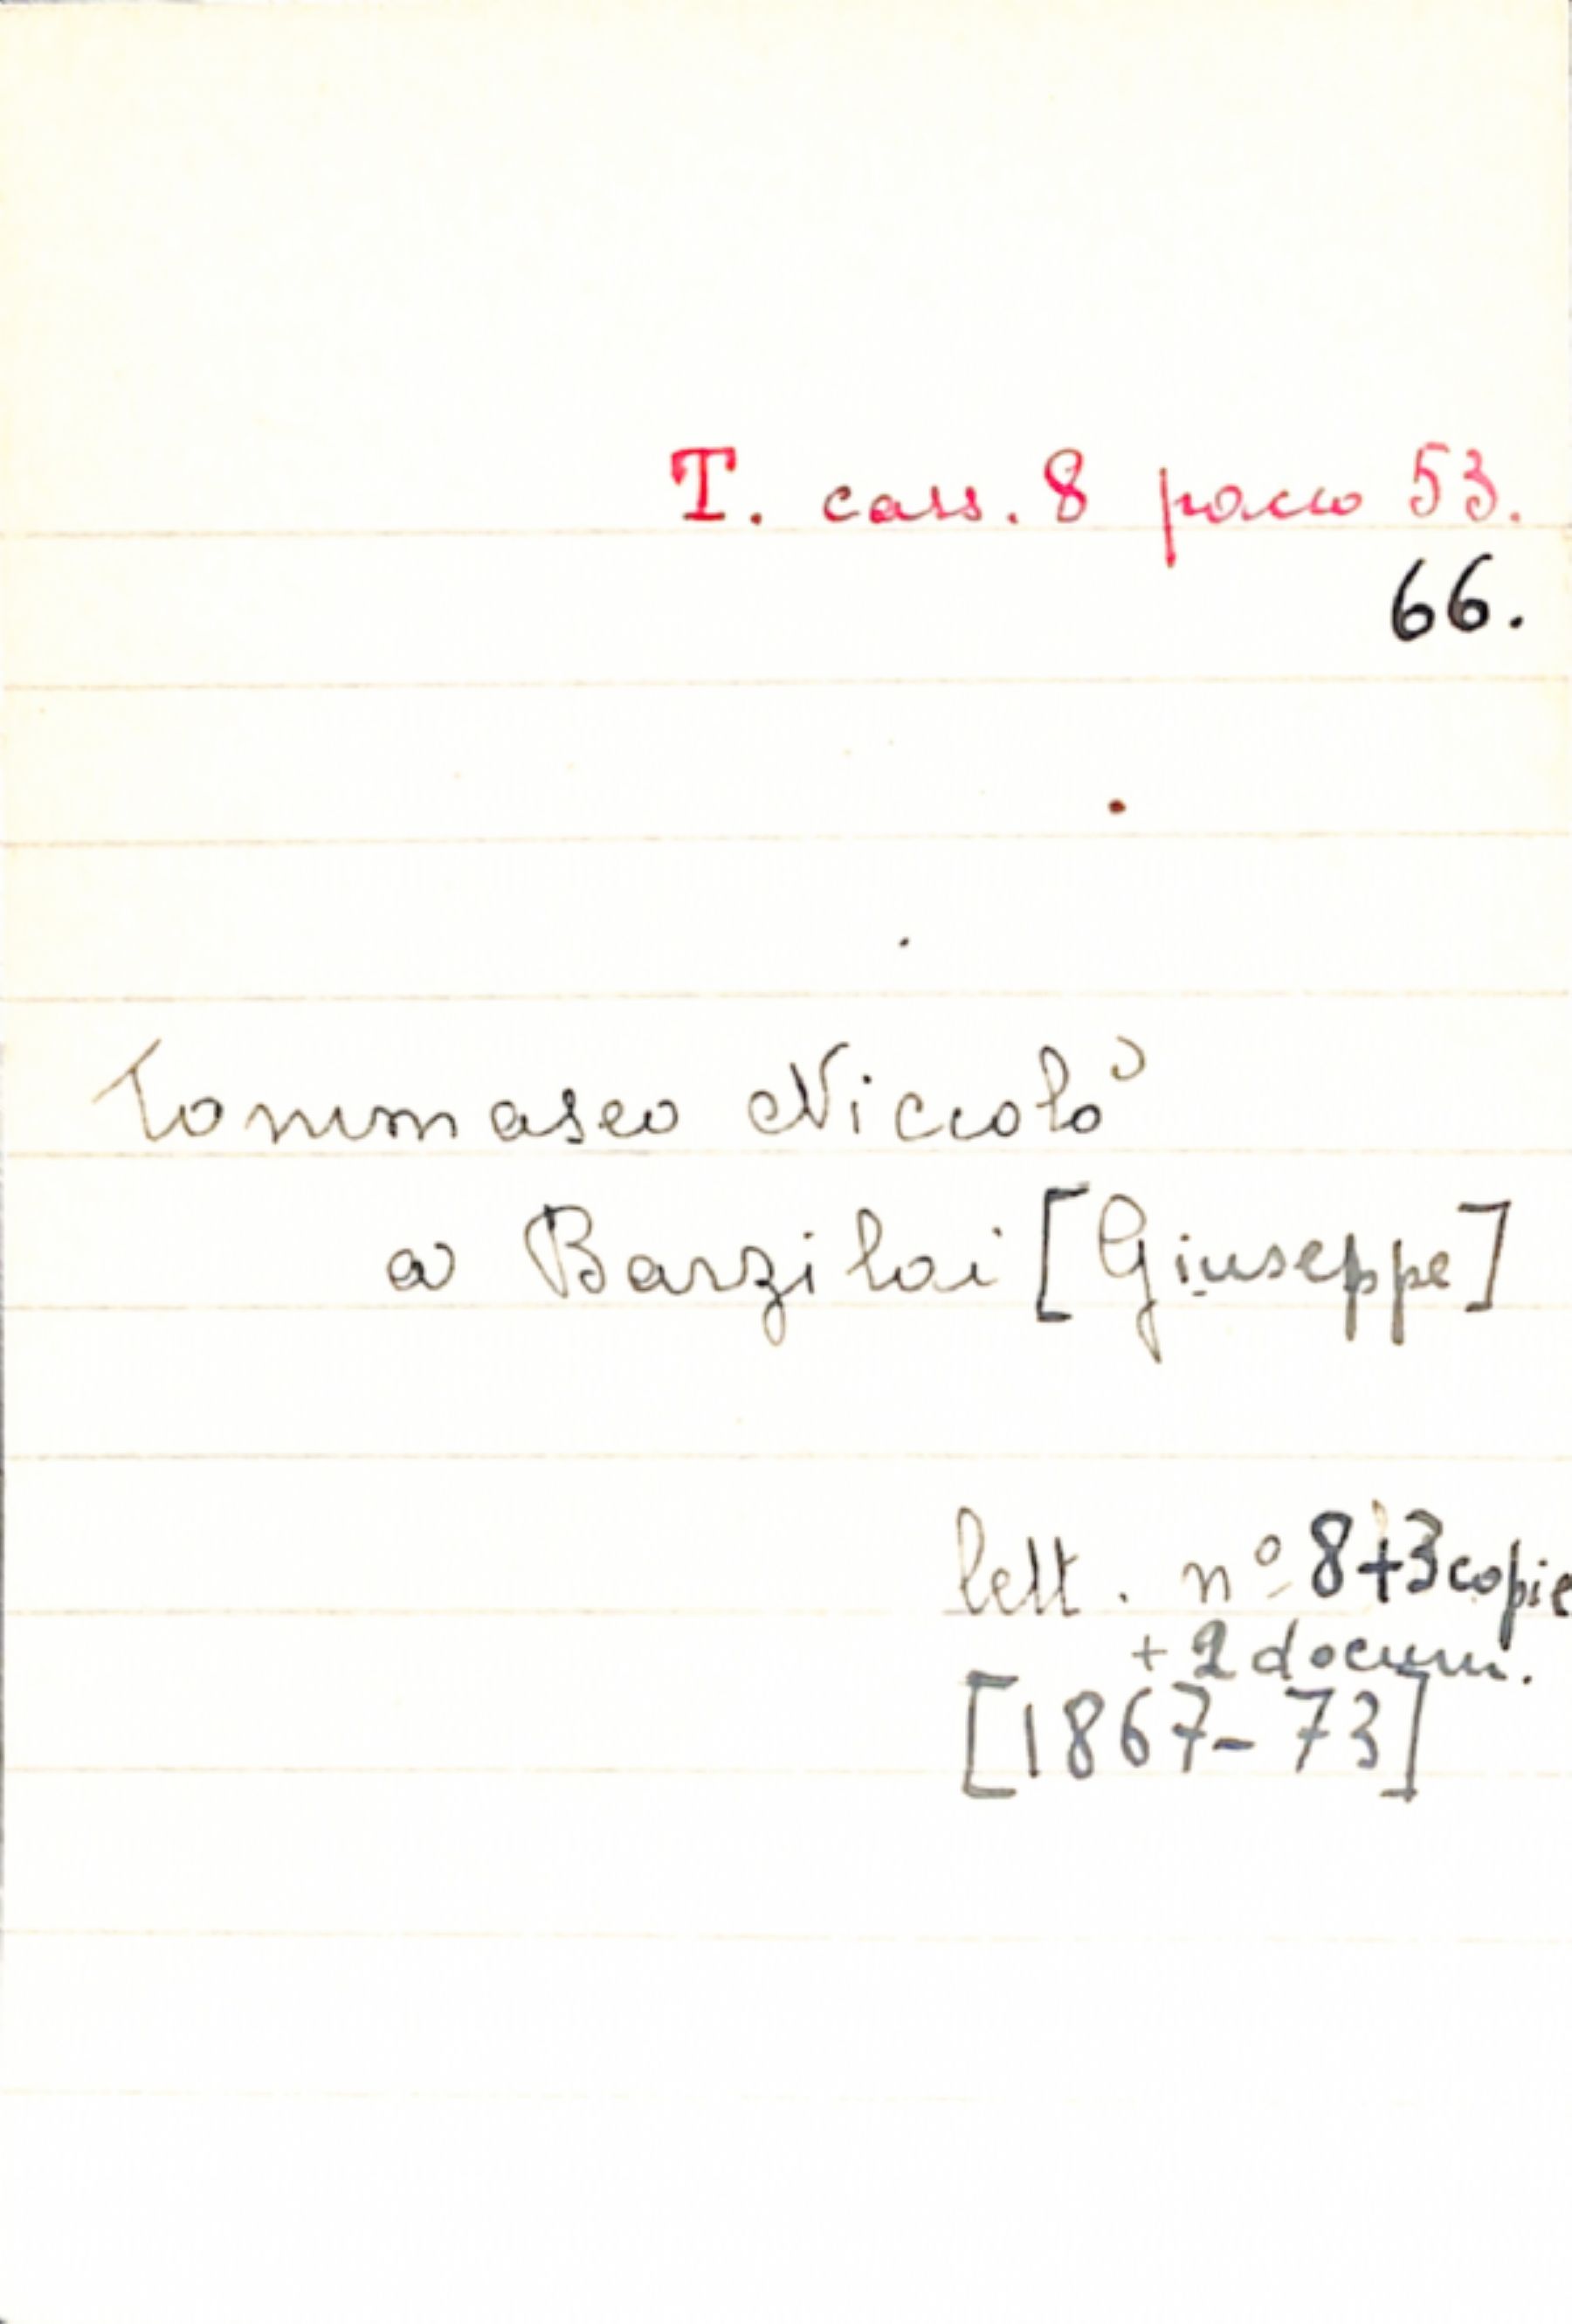 T. cass. 8 pacco 53.
66.
Tommaseo Niccolò
a Barzilai [Giuseppe]
lett. nº 8+3 copie
+ 2 docum.
[1867-73]